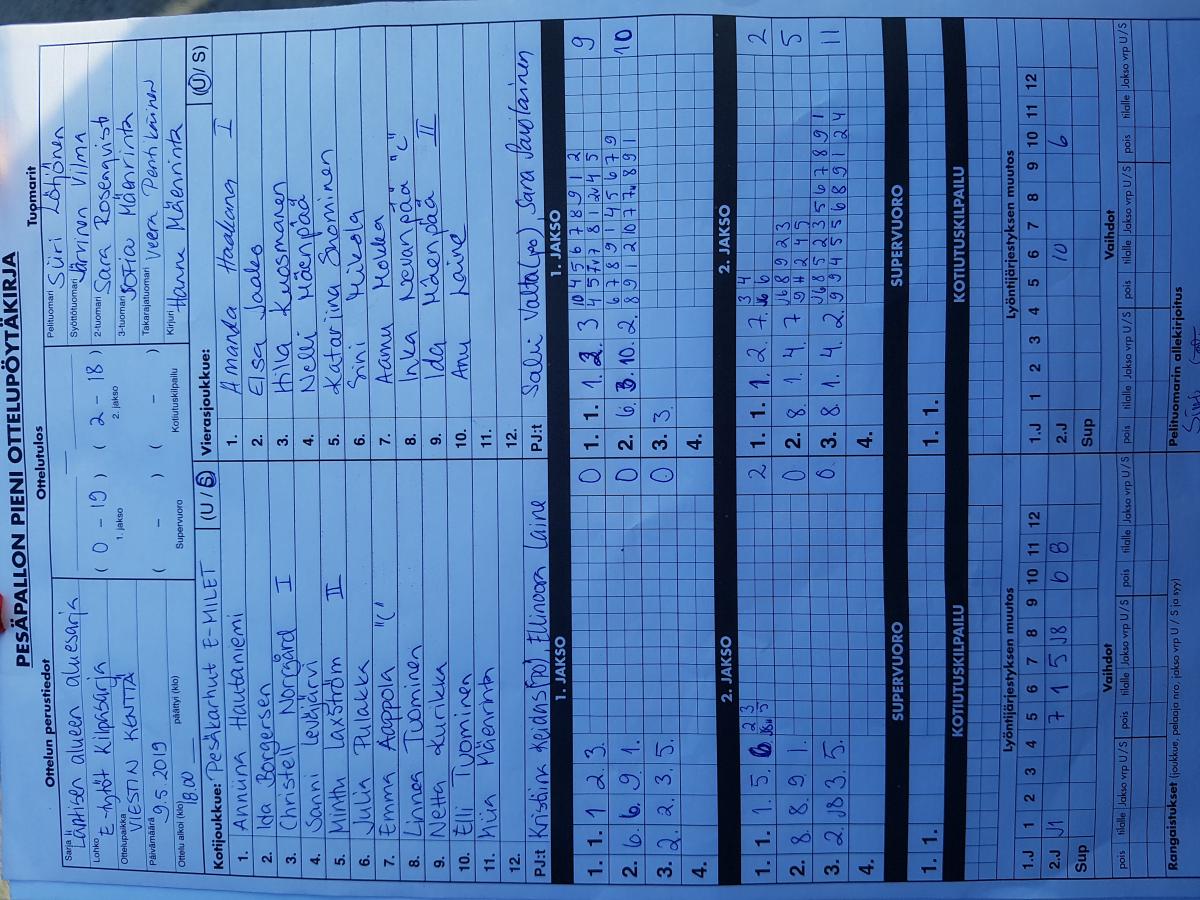 PESÄPALLON PIENI OTTELUPÖYTÄKIRJA
Ottelun perustiedot
Sarja Läntisen alueen aluesarja
Lohko E-tytöt Kilpasarja
Ottelupaikka VIESTIN KENTTÄ
Päivämäärä 9.5.2019
Ottelu alkoi (klo) 18.00 päättyi (klo)
Ottelutulos
( 0 - 19 ) ( 2 - 18 )
1. jakso 2. jakso
( - ) ( - )
Supervuoro Kotiutuskilpailu
Tuomarit
Pelituomari Siiri
Syöttötuomari Järvinen Vilma
2-tuomari Sara Rosenqvist
3-tuomari Sofia Mäenrinta
Takarajatuomari Veera Pentikäinen
Kirjuri Hanne Mäenrinta
Kotijoukkue: Pesäkarhut E-MILET (U / S)
1. Anniina Hautaniemi
2. Ida Borgersen
3. Christell Norrgård I
4. Sanni Leväjärvi
5. Minttu Laxström II
6. Julia Pulakka
7. Emma Aappola "C"
8. Linnea Tuominen
9. Netta Kurikka
10. Elli Tuominen
11. Mäenrinta
12.
PJ:t Kristiina Ellinoora Laine
Vierasjoukkue: (U / S)
1. Amanda Haakana I
2. Elsa Jaako
3. Hilla Kuosmanen
4. Nelli Mäenpää
5. Katariina Suominen
6. Sini Mikola
7. Aamu
8. Inka Nevanpää "C"
9. Ida Mäenpää II
10. Anu Laine
11.
12.
PJ:t Salvi Valta (po), Sara Savolainen
1. JAKSO
1. 1. 1 2 3. 0
2. 6. 6. 9. 1. 0
3. 2. 2. 3. 5. 0
4.
1. JAKSO
1. 1. 1. 2. 3 9
2. 6. 3. 10. 2. 10
3. 3.
4.
2. JAKSO
1. 1. 1. 5. 6. 2
2. 8. 8. 9 1. 0
3. 2. J8 3 5. 0.
4.
2. JAKSO
1. 1. 1. 2. 7. 2
2. 8. 1. 4. 7 5
3. 8. 1. 4. 2. 11
4.
SUPERVUORO
1. 1.
SUPERVUORO
1. 1.
KOTIUTUSKILPAILU
KOTIUTUSKILPAILU
Lyöntijärjestyksen muutos
1.J 1 2 3 4 5 6 7 8 9 10 11 12
2.J J1 7 1 5 J8 6 8
Sup
Lyöntijärjestyksen muutos
1.J 1 2 3 4 5 6 7 8 9 10 11 12
2.J 10 6
Sup
Vaihdot
pois tilalle Jakso vrp U/S pois tilalle Jakso vrp U/S pois tilalle Jakso vrp U/S
Vaihdot
pois tilalle Jakso vrp U/S pois tilalle Jakso vrp U/S pois tilalle Jakso vrp U/S
Rangaistukset (joukkue, pelaaja nro, jakso vrp U / S ja syy)
Pelituomarin allekirjoitus